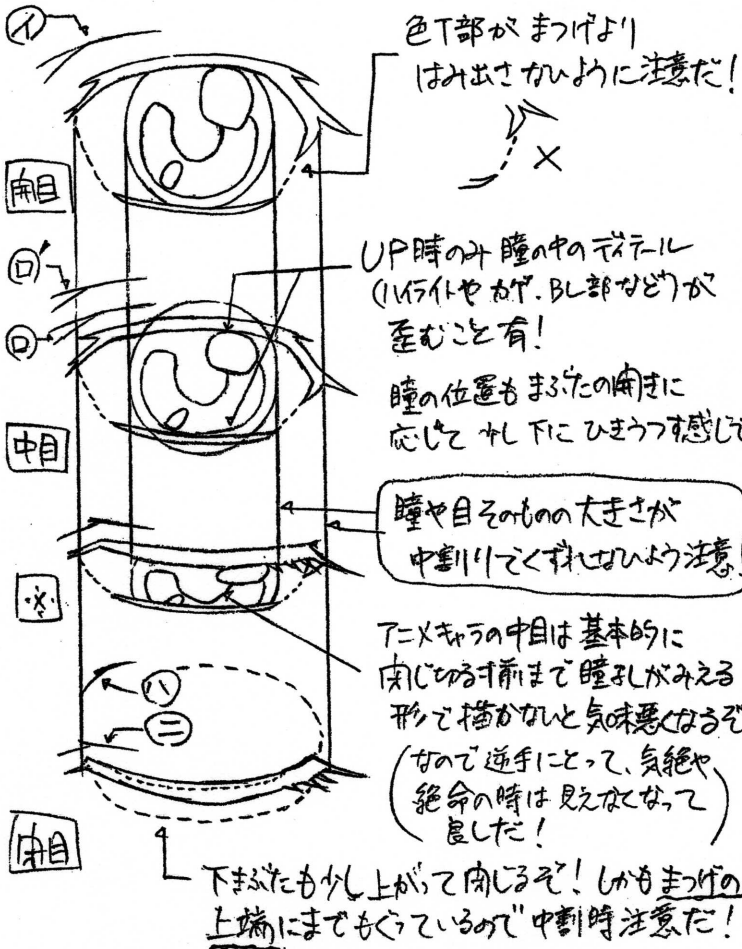 イ
色T部が まつげより
はみ出さなひように注意だ!
×
開目
ロ′
UP時のみ 瞳の中のディテール
(ハイライトや カゲ、BL部など)が
歪むこと有!
ロ
瞳の位置も まぶたの開きに
応じて 少し下に ひきうつす感じで
中目
瞳や目そのものの大きさが
中割りでくずれなひよう注意!
アニメキャラの中目は 基本的に
閉じ切る寸前まで 瞳孔がみえる
形で描かないと気味悪くなるぞ
(なので逆手にとって、気絶や
絶命の時は見えなくなって
良しだ!)
ハ
ニ
閉目
下まぶたも少し上がって閉じるぞ! しかもまつげの
上端にまでもぐっているので中割時注意だ!